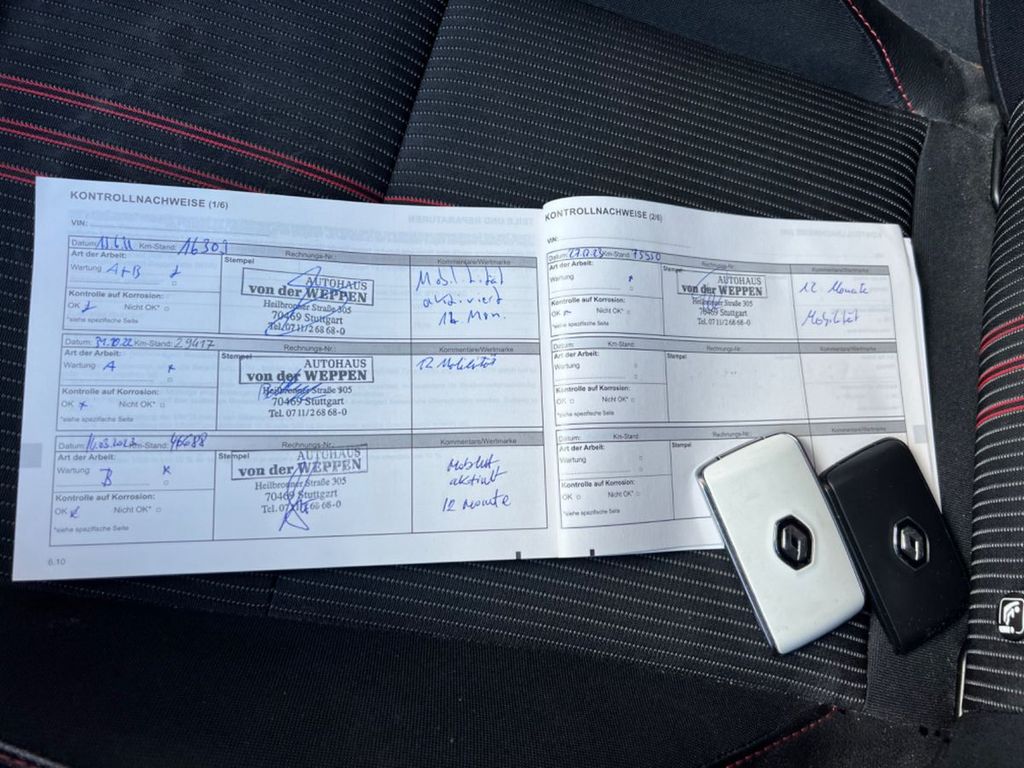 KONTROLLNACHWEISE (1/6)
VIN:
Datum: Km-Stand: 16301
Rechnungs-Nr.:
Kommentare/Wertmarke
Art der Arbeit:
Stempel
Wartung A+B
Kontrolle auf Korrosion:
OK Nicht OK*
*siehe spezifische Seite
AUTOHAUS
von der WEPPEN
Heilbronner Straße 305
70469 Stuttgart
Tel. 07 11/2 68 68-0
Mobilität
aktiviert
12 Mon.
Datum: 31.10.22 Km-Stand: 29417
Rechnungs-Nr.:
Kommentare/Wertmarke
Art der Arbeit:
Stempel
Wartung A x
Kontrolle auf Korrosion:
OK x Nicht OK*
*siehe spezifische Seite
AUTOHAUS
von der WEPPEN
Heilbronner Straße 305
70469 Stuttgart
Tel. 07 11/2 68 68-0
12 Mobilität
Datum: 16.03.2023 Km-Stand: 46688
Rechnungs-Nr.:
Kommentare/Wertmarke
Art der Arbeit:
Stempel
Wartung B x
Kontrolle auf Korrosion:
OK x Nicht OK*
*siehe spezifische Seite
AUTOHAUS
von der WEPPEN
Heilbronner Straße 305
70469 Stuttgart
Tel. 07 11/2 68 68-0
12 Monate
6.10
KONTROLLNACHWEISE (2/6)
VIN:
Datum: Km-Stand: 75550
Rechnungs-Nr.:
Kommentare/Wertmarke
Art der Arbeit:
Stempel
Wartung
Kontrolle auf Korrosion:
OK Nicht OK*
*siehe spezifische Seite
AUTOHAUS
von der WEPPEN
Heilbronner Straße 305
70469 Stuttgart
Tel. 07 11/2 68 68-0
12 Monate
Mobilität
Datum: Km-Stand:
Rechnungs-Nr.:
Kommentare/Wertmarke
Art der Arbeit:
Stempel
Wartung
Kontrolle auf Korrosion:
OK Nicht OK*
*siehe spezifische Seite
Datum: Km-Stand:
Rechnungs-Nr.:
Kommentare/Wertmarke
Art der Arbeit:
Stempel
Wartung
Kontrolle auf Korrosion:
OK Nicht OK*
*siehe spezifische Seite